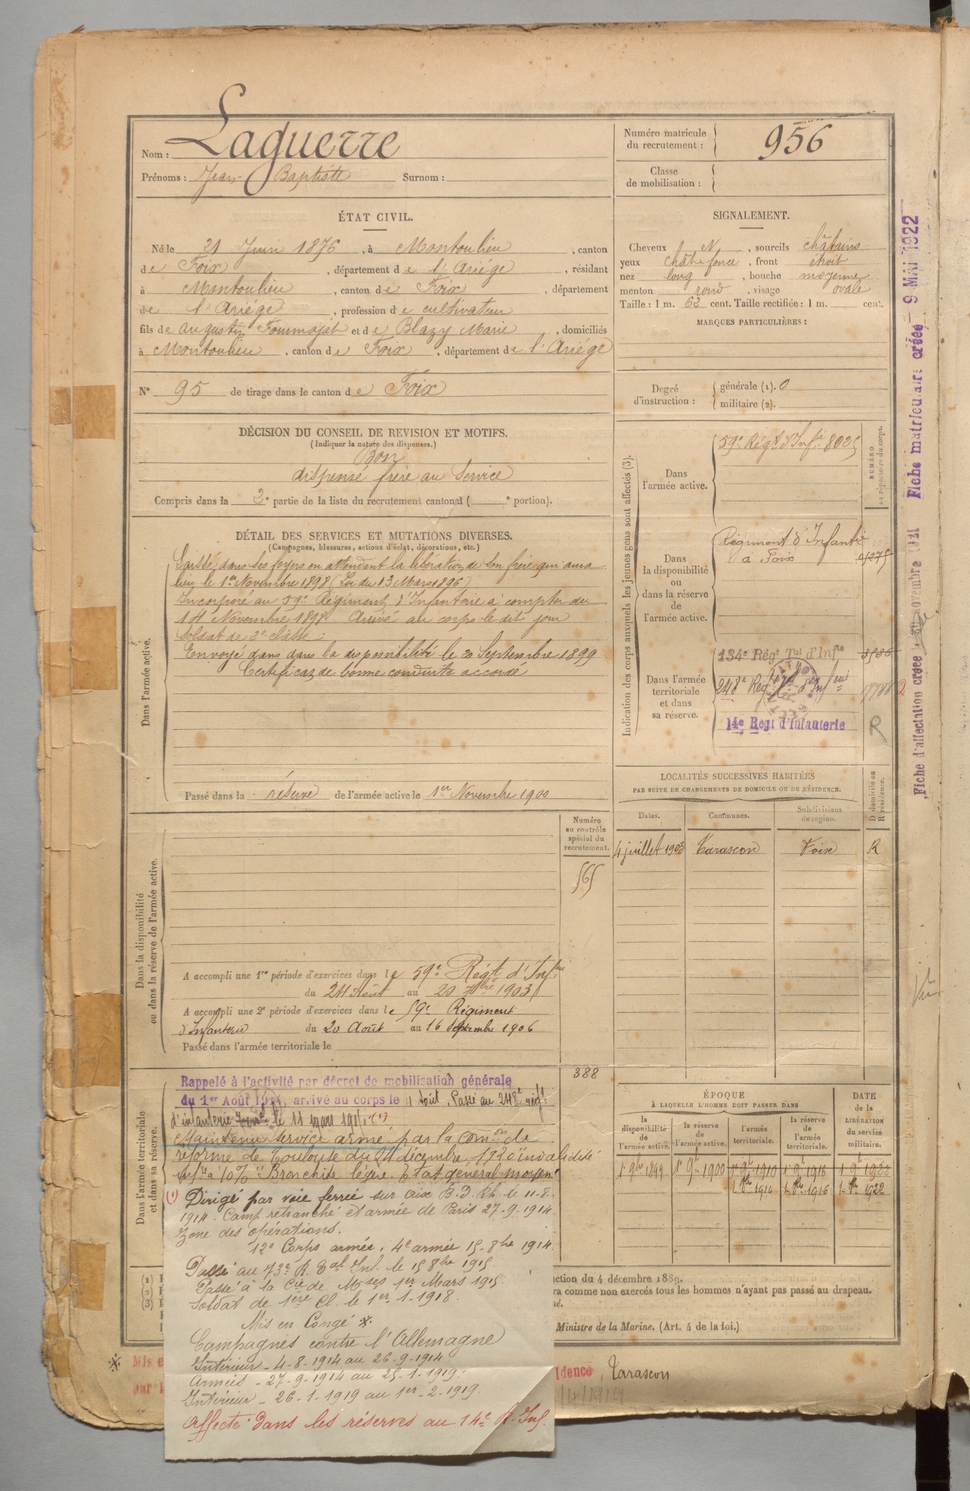 Nom : Laguerre
Prénoms : Jean-Baptiste Surnom :
Numéro matricule du recrutement : 956
Classe de mobilisation :
ÉTAT CIVIL.
Né le 21 Juin 1876, à Montoulieu, canton
de Foix, département de l'Ariége, résidant
à Montoulieu, canton de Foix, département
de l'Ariége, profession de cultivateur
fils de Augustin et de Blazy Marie, domiciliés
à Montoulieu, canton de Foix, département de l'Ariége
N° 95 de tirage dans le canton de Foix
SIGNALEMENT.
Cheveux N, sourcils châtains
yeux chât. foncé, front étroit
nez long, bouche moyenne
menton rond, visage ovale
Taille : 1 m. 63 cent. Taille rectifiée : 1 m. cent.
MARQUES PARTICULIÈRES :
Degré d'instruction : générale (1). 0
militaire (2).
DÉCISION DU CONSEIL DE REVISION ET MOTIFS.
(Indiquer la nature des dispenses.)
Bon
dispensé frère au Service
Compris dans la 2e partie de la liste du recrutement cantonal ( e portion).
DÉTAIL DES SERVICES ET MUTATIONS DIVERSES.
(Campagnes, blessures, actions d'éclat, décorations, etc.)
Dans l'armée active.
Laissé dans ses foyers en attendant la libération de son frère qui aura
lieu le 1er Novembre 1898 (Loi du 13 Mars 1896)
Incorporé au 59e Régiment d'Infanterie à compter du
Novembre 1898 Arrivé au corps le dit jour
Soldat de 2e classe.
Envoyé dans dans la disponibilité le 20 Septembre 1899
Certificat de bonne conduite accordé
Passé dans la réserve de l'armée active le 1er Novembre 1900
Indication des corps auxquels les jeunes gens sont affectés (3).
NUMÉRO au répertoire du corps.
Dans l'armée active. 59e Régt d'Infie
Dans la disponibilité ou dans la réserve de l'armée active. Régiment d'Infantie
à Foix
Dans l'armée territoriale et dans sa réserve. 134e Régt Tal d'Infie
248e Régt d'Infrie
14e Regt d'Infanterie
R
LOCALITÉS SUCCESSIVES HABITÉES
PAR SUITE DE CHANGEMENTS DE DOMICILE OU DE RÉSIDENCE.
Dates. Communes. Subdivisions de région. D domicile ou R résidence.
4 juillet 1903 Tarascon Foix R
Numéro au contrôle spécial du recrutement.
565
Dans la disponibilité ou dans la réserve de l'armée active.
A accompli une 1re période d'exercices dans le 59e Régt d'Infrie
du 24 Août au 20 7bre 1903
A accompli une 2e période d'exercices dans le 59e Régiment
d'Infanterie du 20 Août au 16 Septembre 1906
Passé dans l'armée territoriale le
388
Dans l'armée territoriale et dans sa réserve.
Rappelé à l'activité par décret de mobilisation générale
du 1er Août 1914, arrivé au corps le 11 Août. Passé au 248e
d'infanterie le 11 mars (1)
Maintenu service armé par la Comon de
réforme de Toulouse du décembre 1920 invalidité
infre 10% Bronchite légère. Etat général moyen
(1) Dirigé par voie ferrée sur Aix B.D.Rh. le 11-8-
1914. Camp retranché et armée de Paris 27-9-1914.
Zone des opérations.
12e Corps armée. 4e armée 15-8bre 1914.
Passé au 73e R. Inf. le 15 8bre 1915
Passé à la Cie de Mses 1er Mars 1915
Soldat de 1ère Cl. le 1er-1-1918.
Mis en Congé ※
Campagnes contre l'Allemagne
Intérieur - 4-8-1914 au 26-9-1914
Armées - 27-9-1914 au 25-1-1919.
Intérieur - 26-1-1919 au 1er-2-1919.
Affecté dans les réserves au 14e R. Inf.
ÉPOQUE À LAQUELLE L'HOMME DOIT PASSER DANS
DATE de la LIBÉRATION du service militaire.
la disponibilité de l'armée active. la réserve de l'armée active. l'armée territoriale. la réserve de l'armée territoriale.
1er 9bre 1899 1er 9bre 1900 1er 9bre 1910 1er 9bre 1916
1er 8bre 1916
ction du 4 décembre 1889.
ra comme non exercés tous les hommes n'ayant pas passé au drapeau.
Ministre de la Marine. (Art. 4 de la loi.)
※ Mis e
par
idence Tarascon
Fiche matriculaire créée 9 MAI 1922
Fiche d'affectation créée novembre 1921
Vu